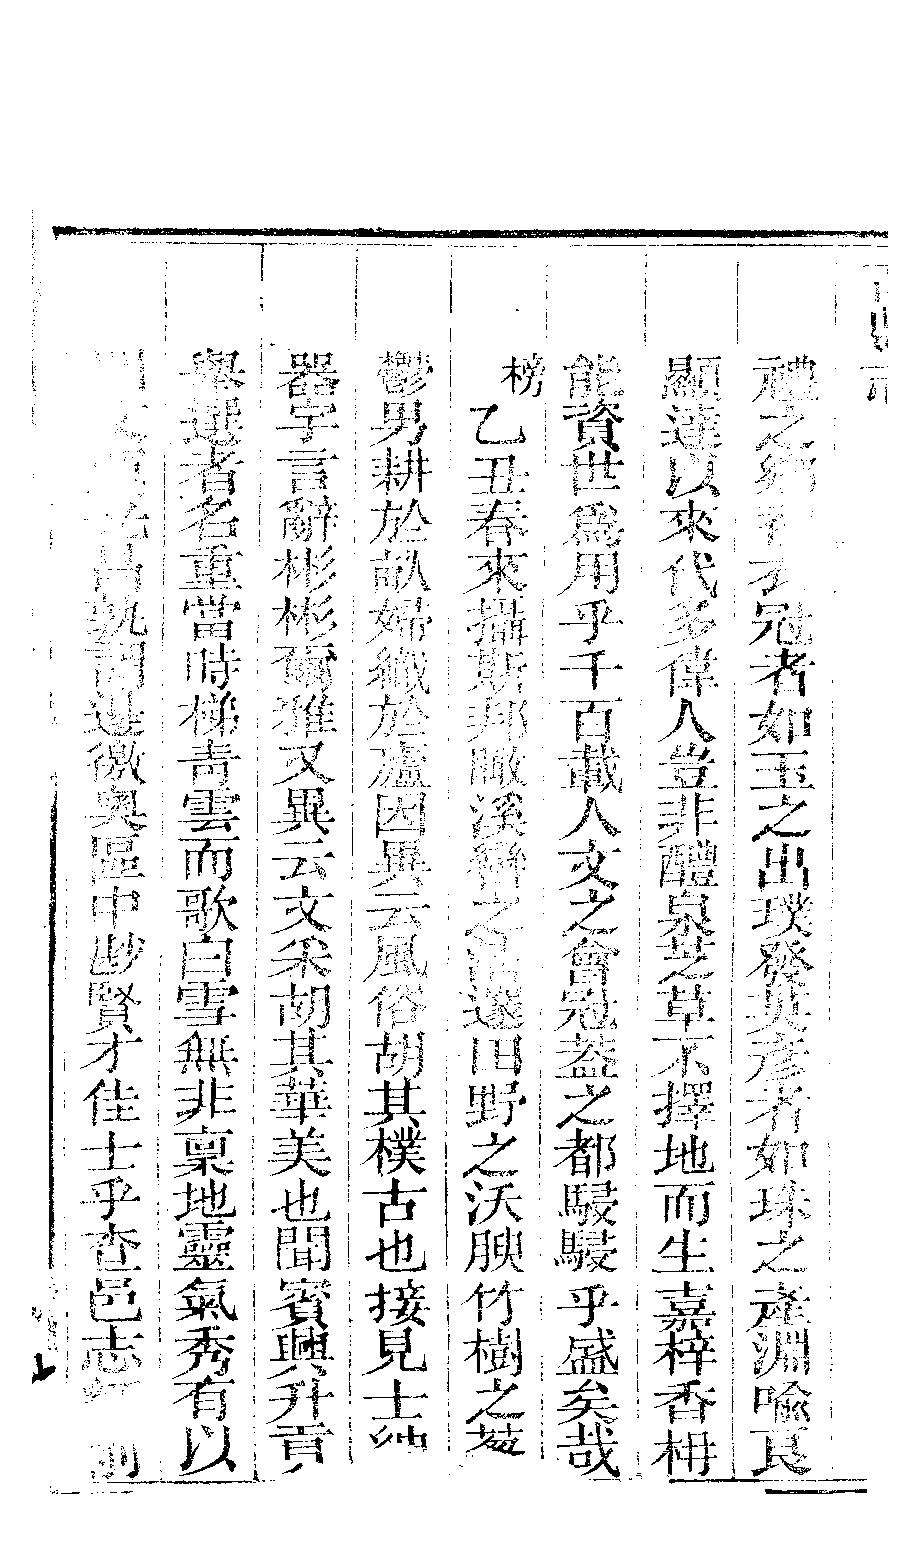 禮之鄉冠者如玉之出璞發英彥者如珠之產淵喻良
顯達以來代多偉人豈非醴泉芝草不擇地而生嘉梓香枏
能資世爲用乎千百載人文之會冠葢之都駸駸乎盛矣哉
榜乙丑春來攝斯邦瞰溪之逶田野之沃腴竹樹之葢
鬱男耕於畝婦織於廬因異云風俗胡其樸古也接見士紳
器宇言辭彬彬爾雅又異云文采胡其華美也聞賓興升貢
舉選者名重當時梯靑雲而歌白雪無非稟地靈氣秀有以
區中尠賢才佳士乎查邑志創